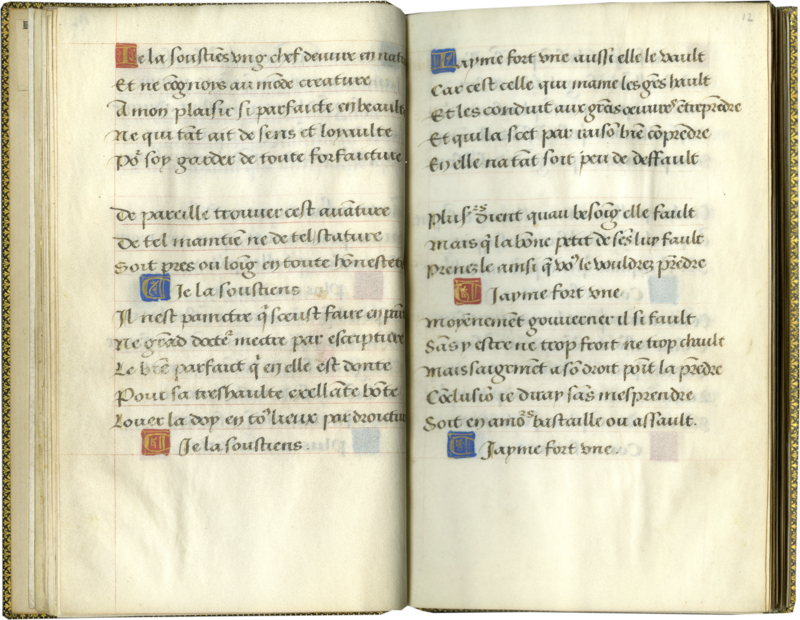 Je la soustiēs vng chef deuvre en natu
Et ne cōgnoys au mōde creature
A mon plaisir si parfaicte en beaulte
Ne qui tāt ait de sens et loyaulte
Po᷑ soy garder de toute forfaicture
De pareille trouuer cest auāture
De tel maintiē ne de tel stature
Soit pres ou loing en toute hōnestete
Je la soustiens
Il nest painctre q̄ sceust faire en pain
Ne grād docte᷑ mectre par escripture
Le biē parfaict q̄ en elle est donte
Pour sa treshaulte exellāte bōte
Louer la doy en to᷒ lieux par droictur
Je la soustiens.
12
Jayme fort vne aussi elle le vault
Car cest celle qui mame les grēs hault
Et les conduit aux grās œuure᷒ ētreprēdre
Et qui la scet par raisō biē cōprēdre
En elle na tāt soit peu de deffault
Plus᷒ diēnt quau besoing elle fault
Mais q̄ la bōne petit de ses luy fault
Prenez le ainsi q̄ vo᷒ le vouldrez prēdre
Jayme fort vne
Moyēnemēt gouuerner il si fault
Sās y estre ne trop froit ne trop chault
Mais saigemēt a sō droit poīt la prēdre
Cōclusiō ie diray sās mesprendre
Soit en amo᷑s bastaille ou assault.
Jayme fort vne.